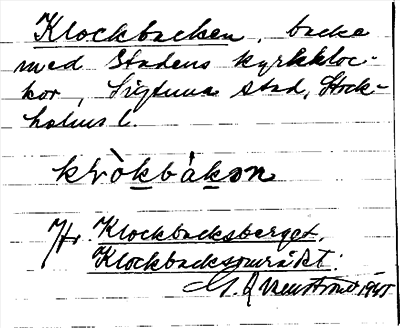 Klockbacken, backe
med Stadens kyrkkloc-
kor, Sigtuna stad, Stock-
holms l.
klòkbàkən
Jfr Klockbacksberget,
Klockbacksområdet.
1945